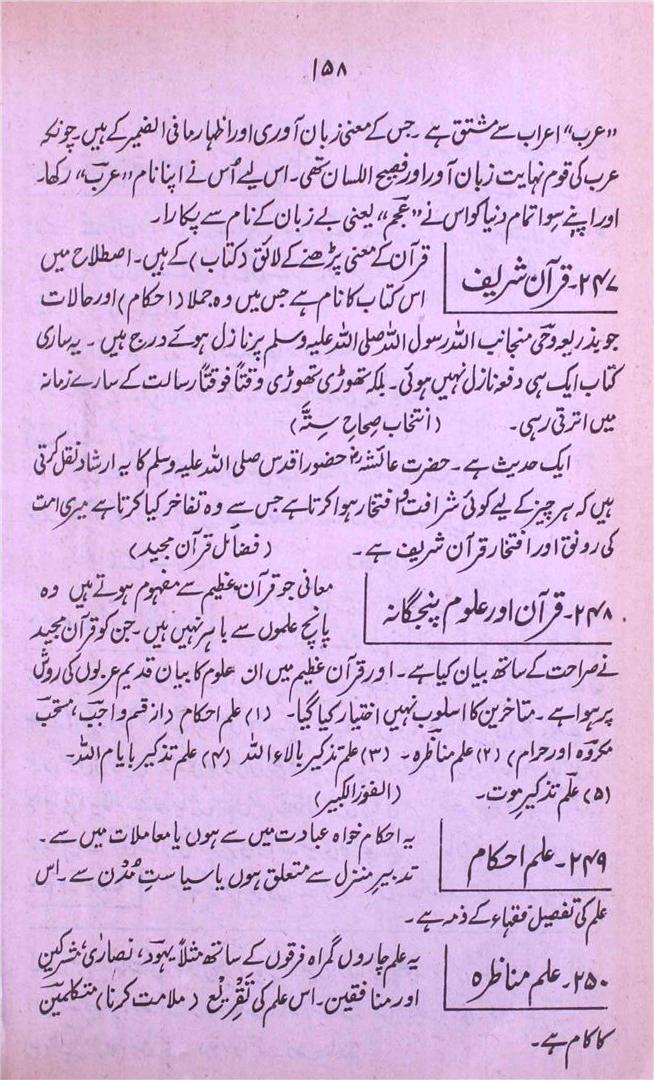 ۱۵۸
"عرب" اعراب سے مشتق ہے۔ جس کے معنی زبان آوری اور اظہار مافی الضمیر کے ہیں۔ چونکہ
عرب کی قوم نہایت زبان آور اور فصیح اللسان تھی۔ اس لیے اُس نے اپنا نام "عرب" رکھا۔
اور اپنے سوا تمام دنیا کو اس نے "عجم" یعنی بے زبان کے نام سے پکارا۔
۲۴۷۔ قرآن شریف
قرآن کے معنی پڑھنے کے لائق (کتاب) کے ہیں۔ اصطلاح میں
اس کتاب کا نام ہے جس میں وہ جملا (احکام) اور حالات
جو بذریعہ وحی منجانب اللہ رسول اللہ صلی اللہ علیہ وسلم پر نازل ہوئے درج ہیں۔ یہ ساری
کتاب ایک ہی دفعہ نازل نہیں ہوئی۔ بلکہ تھوڑی تھوڑی وقتاً فوقتاً رسالت کے سارے زمانہ
میں اترتی رہی۔ (انتخاب صحاحِ ستہ)
ایک حدیث ہے۔ حضرت عائشہؓ حضور اقدس صلی اللہ علیہ وسلم کا یہ ارشاد نقل کرتی
ہیں کہ ہر چیز کے لیے کوئی شرافت و افتخار ہوا کرتا ہے جس سے وہ تفاخر کیا کرتا ہے میری امت
کی رونق اور افتخار قرآن شریف ہے۔ (فضائل قرآن مجید)
۲۴۸۔ قرآن اور علوم پنجگانہ
معانی جو قرآن عظیم سے مفہوم ہوتے ہیں وہ
پانچ علموں سے باہر نہیں ہیں۔ جن کو قرآن مجید
نے صراحت کے ساتھ بیان کیا ہے۔ اور قرآن عظیم میں ان علوم کا بیان قدیم عربوں کی روش
پر ہوا ہے۔ متاخرین کا اسلوب نہیں اختیار کیا گیا۔ (۱) علم احکام (از قسم واجب، مستحب
مکروہ اور حرام) (۲) علم مناظرہ۔ (۳) علم تذکیر بالاء اللہ (۴) علم تذکیر بایام اللہ۔
(۵) علم تذکیرِ موت۔ (الفوز الکبیر)
۲۴۹۔ علم احکام
یہ احکام خواہ عبادت میں سے ہوں یا معاملات میں سے۔
تدبیرِ منزل سے متعلق ہوں یا سیاستِ مُدُن سے۔ اس
علم کی تفصیل فقہاء کے ذمہ ہے۔
۲۵۰۔ علم مناظرہ
یہ علم چاروں گمراہ فرقوں کے ساتھ مثلاً یہود، نصاریٰ، مشرکین
اور منافقین۔ اس علم کی تَقْرِیْع (ملامت کرنا) متکلمین
کا کام ہے۔